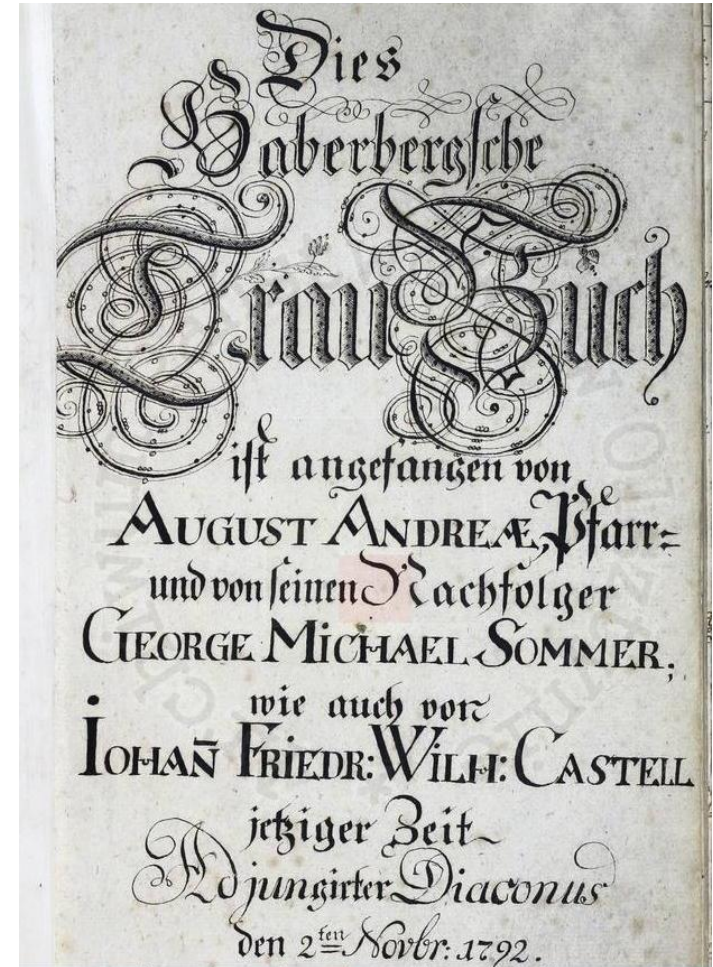 Dies
Haberbergsche
Trau Buch
ist angefangen von
AUGUST ANDREÆ, Pfarr=
und von seinen Nachfolger
GEORGE MICHAEL SOMMER,
wie auch von
IOHAN̄ FRIEDR: WILH: CASTELL
jetziger Zeit
Adjungirter Diaconus
den 2ten Novbr: 1792.